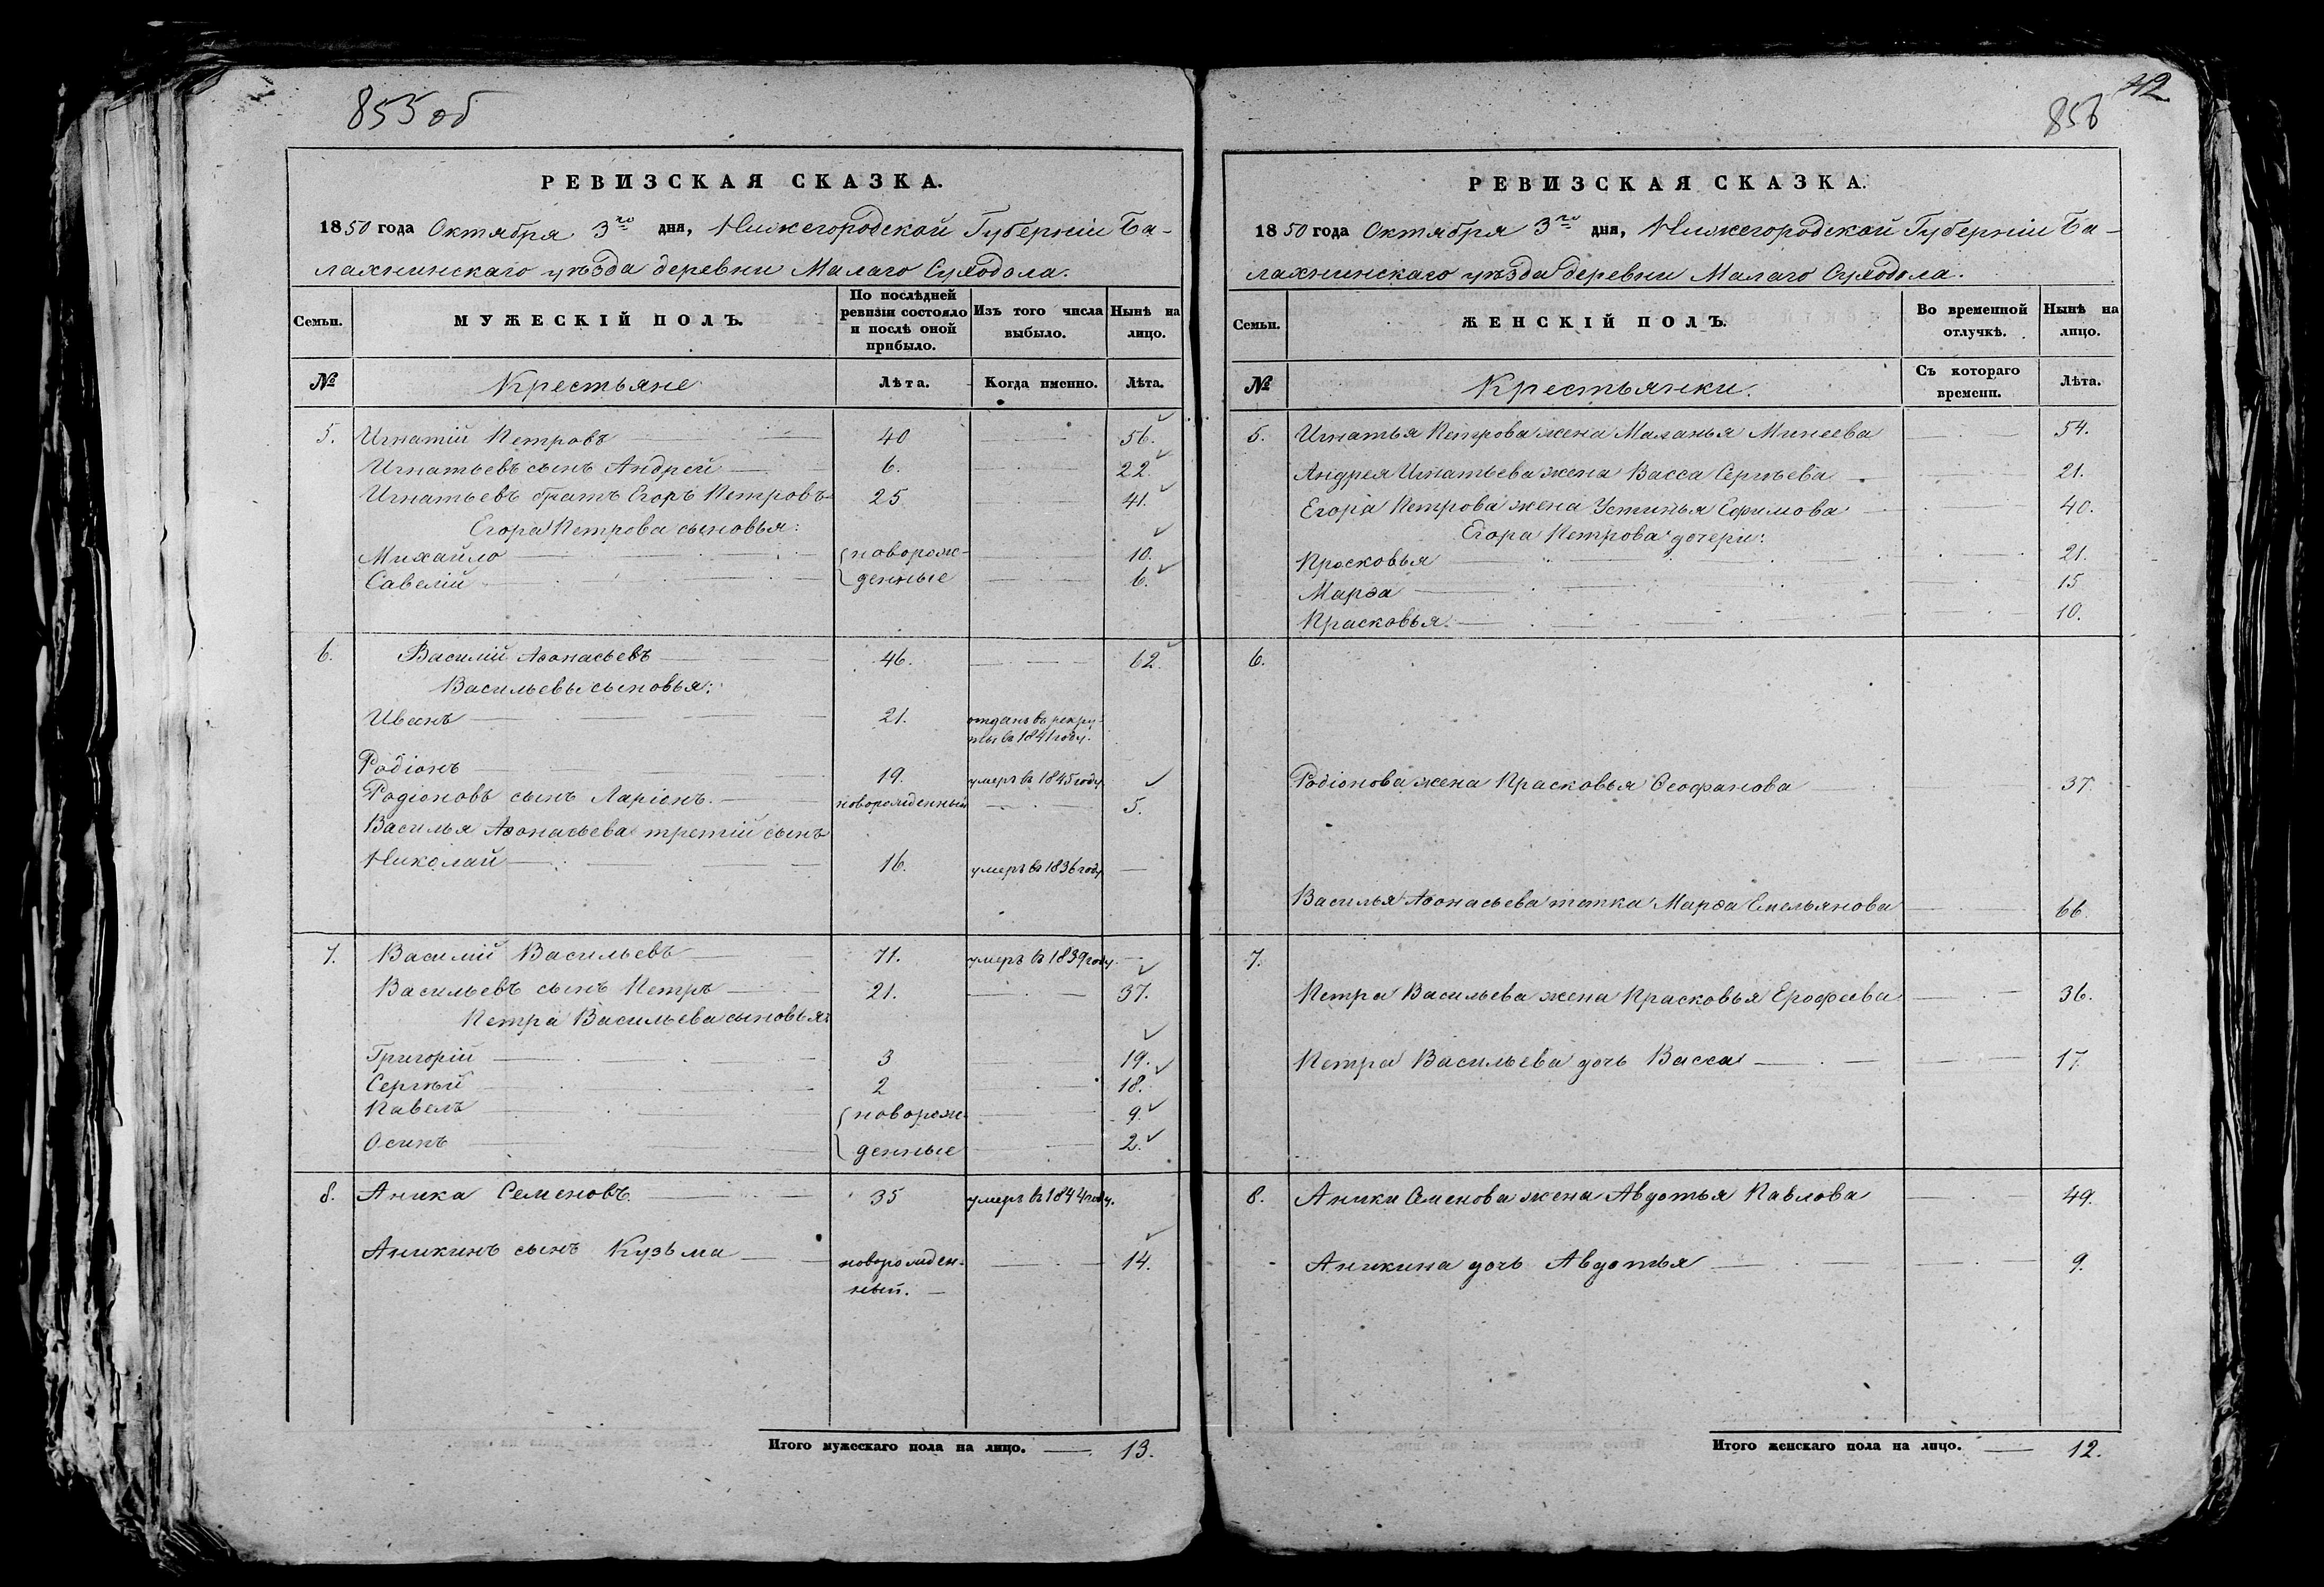 855 об
РЕВИЗСКАЯ СКАЗКА.
1850 года Октября 3го дня, Нижегородской Губерніи Ба-
лахнинскаго уѣзда деревни Малаго Суходола.
Семьи. МУЖЕСКІЙ ПОЛЪ. По послѣдней ревизіи состояло и послѣ оной прибыло. Изъ того числа выбыло. Нынѣ на лицо.
№ Крестьяне Лѣта. Когда именно. Лѣта.
5. Игнатій Петровъ 40 56.
Игнатьевъ сынъ Андрей 6. 22
Игнатьевъ братъ Егоръ Петровъ 25 41.
Егора Петрова сыновья:
Михайло новорож- 10.
Савелій денные 6.
6. Василій Аѳонасьевъ 46. 62
Васильевы сыновья:
Иванъ 21. отданъ въ рекру-
ты въ 1841 году.
Родіонъ 19. умеръ въ 1845 году
Родіоновъ сынъ Ларіонъ. новорожденный 5.
Василья Аѳонасьева третій сынъ
Николай 16. умеръ въ 1836 году
7. Василій Васильевъ 71. умеръ въ 1839 году.
Васильевъ сынъ Петръ 21. 37.
Петра Васильева сыновья:
Григорій 3 19.
Сергѣй 2 18.
Павелъ новорож- 9.
Осипъ денные 2.
8. Аника Семеновъ 35 умеръ въ 1844 году.
Аникинъ сынъ Кузьма новорожден- 14.
ный.
Итого мужескаго пола на лицо. 13.
42
856
РЕВИЗСКАЯ СКАЗКА.
1850 года Октября 3го дня, Нижегородской Губерніи Ба-
лахнинскаго уѣзда деревни Малаго Суходола.
Семьи. ЖЕНСКІЙ ПОЛЪ. Во временной отлучкѣ. Нынѣ на лицо.
№ Крестьянки. Съ котораго времени. Лѣта.
5. Игнатья Петрова жена Маланья Минеева 54.
Андрея Игнатьева жена Васса Сергѣева 21.
Егора Петрова жена Устинья Ефимова 40.
Егора Петрова дочери:
Прасковья 21.
Марѳа 15
Прасковья. 10.
6.
Родіонова жена Прасковья Ѳеофанова 37
Василья Аѳонасьева тетка Марѳа Емельянова 66.
7.
Петра Васильева жена Прасковья Ерофеева 36.
Петра Васильева дочь Васса 17
8. Аники Семенова жена Авдотья Павлова 49.
Аникина дочь Авдотья 9.
Итого женскаго пола на лицо. 12.